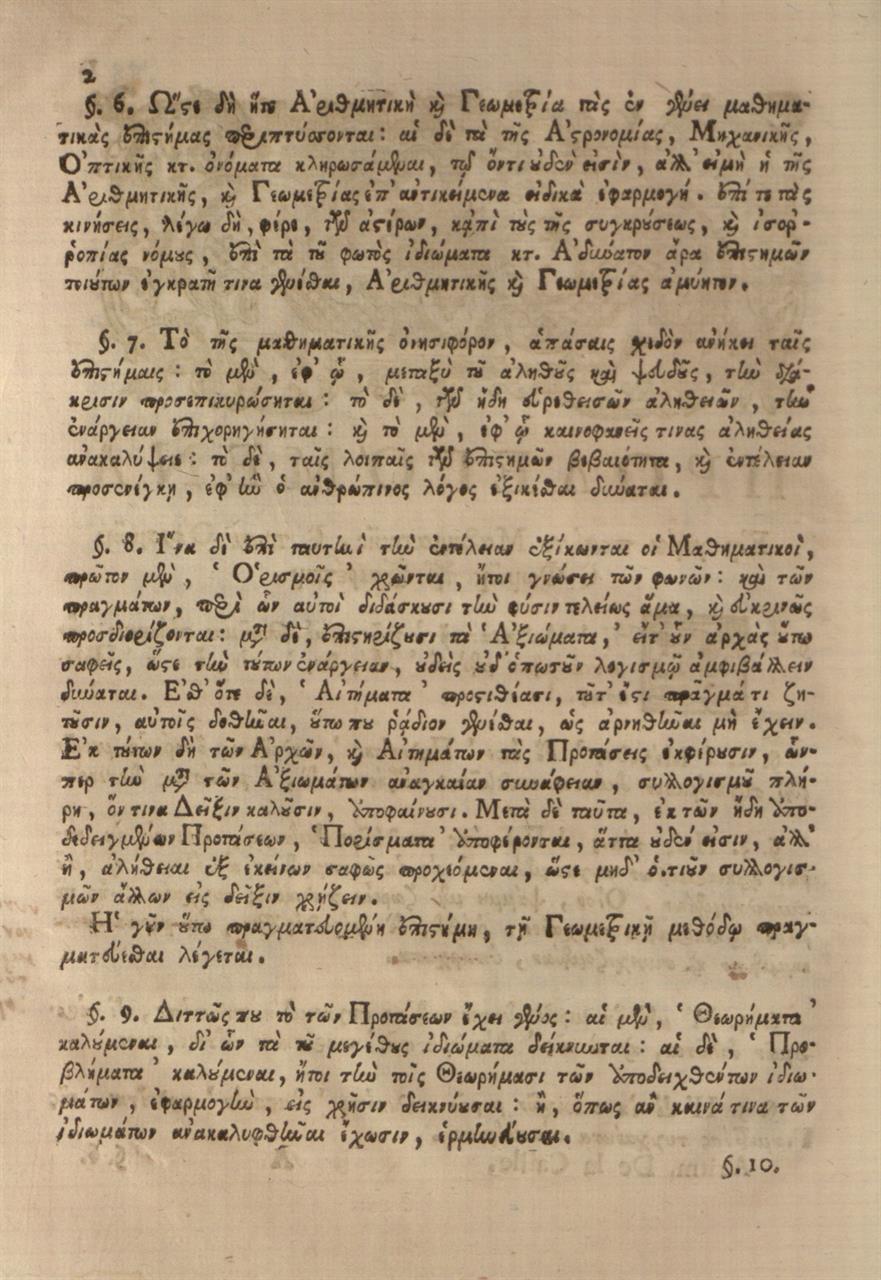 2
§. 6. Ὥστε δὴ ἥτε Ἀριθμητικὴ καὶ Γεωμετρία πᾶς ἐν γένει μαθημα-
τικὰς ἐπιστήμας περιπτύσσονται: αἱ δὲ τὰ τῆς Ἀστρονομίας, Μηχανικῆς,
Ὀπτικῆς κτ. ὀνόματα κληρωσάμεναι, τῷ ὄντι οὐδέν εἰσὶν, ἀλλ' εἰμὴ ἡ τῆς
Ἀριθμητικῆς, καὶ Γεωμετρίας ἐπ' ἀντικείμενα εἰδικὰ ἐφαρμογή. ἐπί τε τὰς
κινήσεις, λέγω δὴ, φέρε, τῶν ἀστέρων, κᾀπὶ τοὺς τῆς συγκρούσεως, καὶ ἰσορ-
ῥοπίας νόμους, ἐπὶ τὰ τοῦ φωτὸς ἰδιώματα κτ. Ἀδύνατον ἄρα ἐπιστημῶν
τοιούτων ἐγκρατῆ τινα γενέσθαι, Ἀριθμητικῆς καὶ Γεωμετρίας ἀμύητον.
§. 7. Τὸ τῆς μαθηματικῆς ὀνησιφόρον, ἁπάσαις σχεδὸν ἀνήκει ταῖς
ἐπιστήμαις: τὸ μὲν, ἐφ' ᾧ, μεταξὺ τοῦ ἀληθοῦς καὶ ψευδοῦς, τὴν διά-
κρισιν προσεπικυρώσηται: τὸ δὲ, τῶν ἤδη εὑρεθεισῶν ἀληθειῶν, τὴν
ἐνάργειαν ἐπιχορηγήσηται: καὶ τὸ μὲν, ἐφ' ᾧ καινοφανεῖς τινας ἀληθείας
ἀνακαλύψειε: τὸ δὲ, ταῖς λοιπαῖς τῶν ἐπιστημῶν βεβαιότητα, καὶ ἐντέλειαν
προσενέγκῃ, ἐφ' ἣν ὁ ἀνθρώπινος λόγος ἐξικέσθαι δύναται.
§. 8. Ἵνα δὲ ἐπὶ ταυτηνὶ τὴν ἐντέλειαν ἐξίκωνται οἱ Μαθηματικοὶ,
πρῶτον μὲν, ‘Ὁρισμοῖς’ χρῶνται, ἤτοι γνώσει τῶν φωνῶν: καὶ τῶν
πραγμάτων, περὶ ὧν αὐτοὶ διδάσκουσι τὴν φύσιν τελείως ἅμα, καὶ εὐκρινῶς
προσδιορίζονται: μετὰ δὲ, ἐπιστηρίζουσι τὰ ‘Ἀξιώματα,’ εἴτ' οὖν ἀρχὰς οὕτω
σαφεῖς, ὥστε τὴν τούτων ἐνάργειαν, οὐδεὶς οὐδ' ὁπωτοῦν λογισμῷ ἀμφιβάλλειν
δύναται. Ἔσθ' ὅτε δὲ, ‘Αἰτήματα’ προστιθέασι, τοῦτ' ἔστι πρᾶγμά τι ζη-
τοῦσιν, αὐτοῖς δοθῆναι, οὕτω που ῥάδιον γενέσθαι, ὡς ἀρνηθῆναι μὴ ἔχειν.
Ἐκ τούτων δὴ τῶν Ἀρχῶν, καὶ Αἰτημάτων τὰς Προτάσεις ἐκφέρουσιν, ὧν-
περ τὴν μετὰ τῶν Ἀξιωμάτων ἀναγκαίαν συνάφειαν, συλλογισμοῦ πλή-
ρη, ὅν τινα Δεῖξιν καλοῦσιν, ὑποφαίνουσι. Μετὰ δὲ ταῦτα, ἐκ τῶν ἤδη ὑπο-
δεδειγμένων Προτάσεων, ‘Πορίσματα’ ὑποφέρονται, ἅττα οὐδέν εἰσιν, ἀλλ'
ἢ, ἀλήθειαι ἐξ ἐκείνων σαφῶς προχεόμεναι, ὥστε μηδ' ὁτιοῦν συλλογισ-
μῶν ἄλλων εἰς δεῖξιν χρῄζειν.
Ἡ γοῦν οὕτω πραγματευομένη ἐπιστήμη, τῇ Γεωμετρικῇ μεθόδῳ πραγ-
ματεύεσθαι λέγεται.
§. 9. Διττῶς που τὸ τῶν Προτάσεων ἔχει γένος: αἱ μὲν, ‘Θεωρήματα’
καλούμεναι, δι' ὧν τὰ τοῦ μεγέθους ἰδιώματα δείκνυνται: αἱ δὲ, ‘Προ-
βλήματα’ καλούμεναι, ἤτοι τὴν τοῖς Θεωρήμασι τῶν ὑποδειχθέντων ἰδιω-
μάτων, ἐφαρμογὴν, εἰς χρῆσιν δεικνύουσαι: ἢ, ὅπως ἂν καινά τινα τῶν
ἰδιωμάτων ἀνακαλυφθῆναι ἔχωσιν, ἑρμηνεύουσαι.
§. 10.